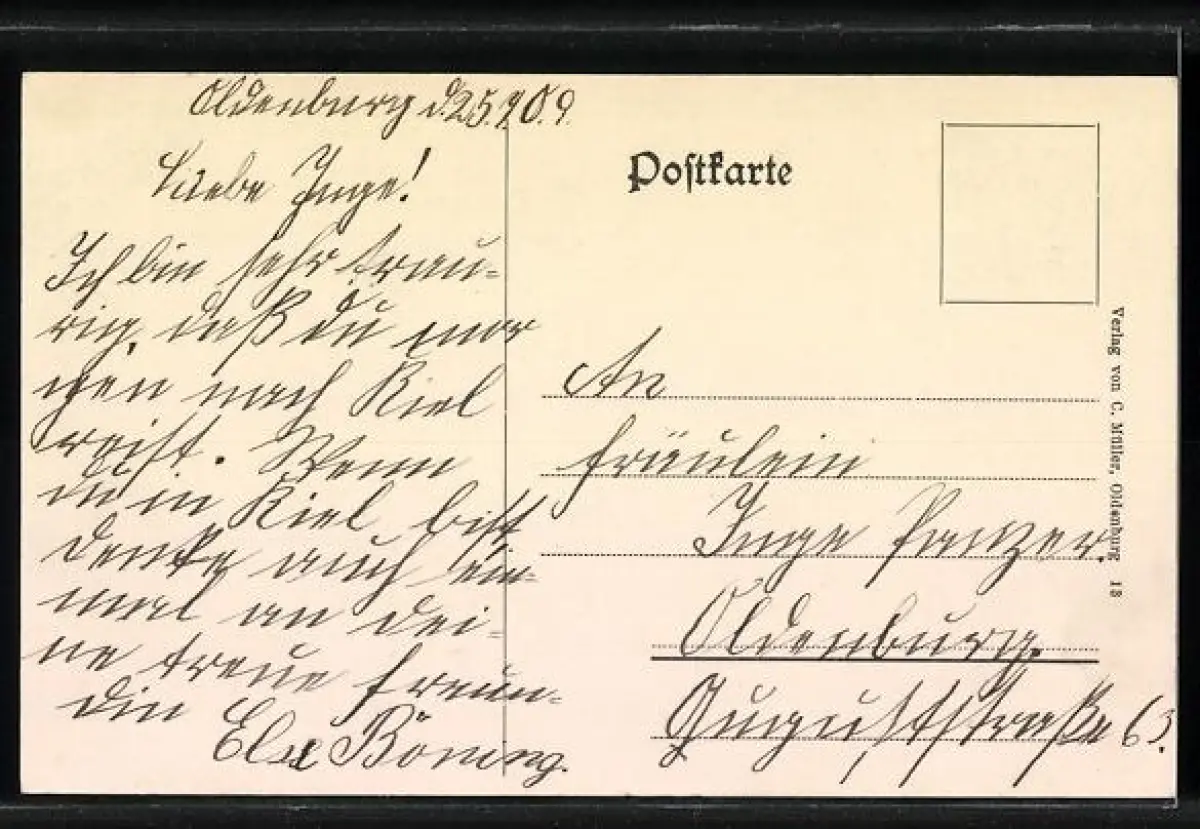 Oldenburg d. 25.9.09.
Liebe Inge!
Ich bin sehr trau-
rig, daß du mor
gen nach Kiel
reist. Wenn
du in Kiel bist
denke auch ein-
mal an dei-
ne treue Freun-
din
Else Böning.
Postkarte
An
Fräulein
Inge Panzer.
Oldenburg.
Auguststraße 63.
Verlag von C. Müller, Oldenburg 13